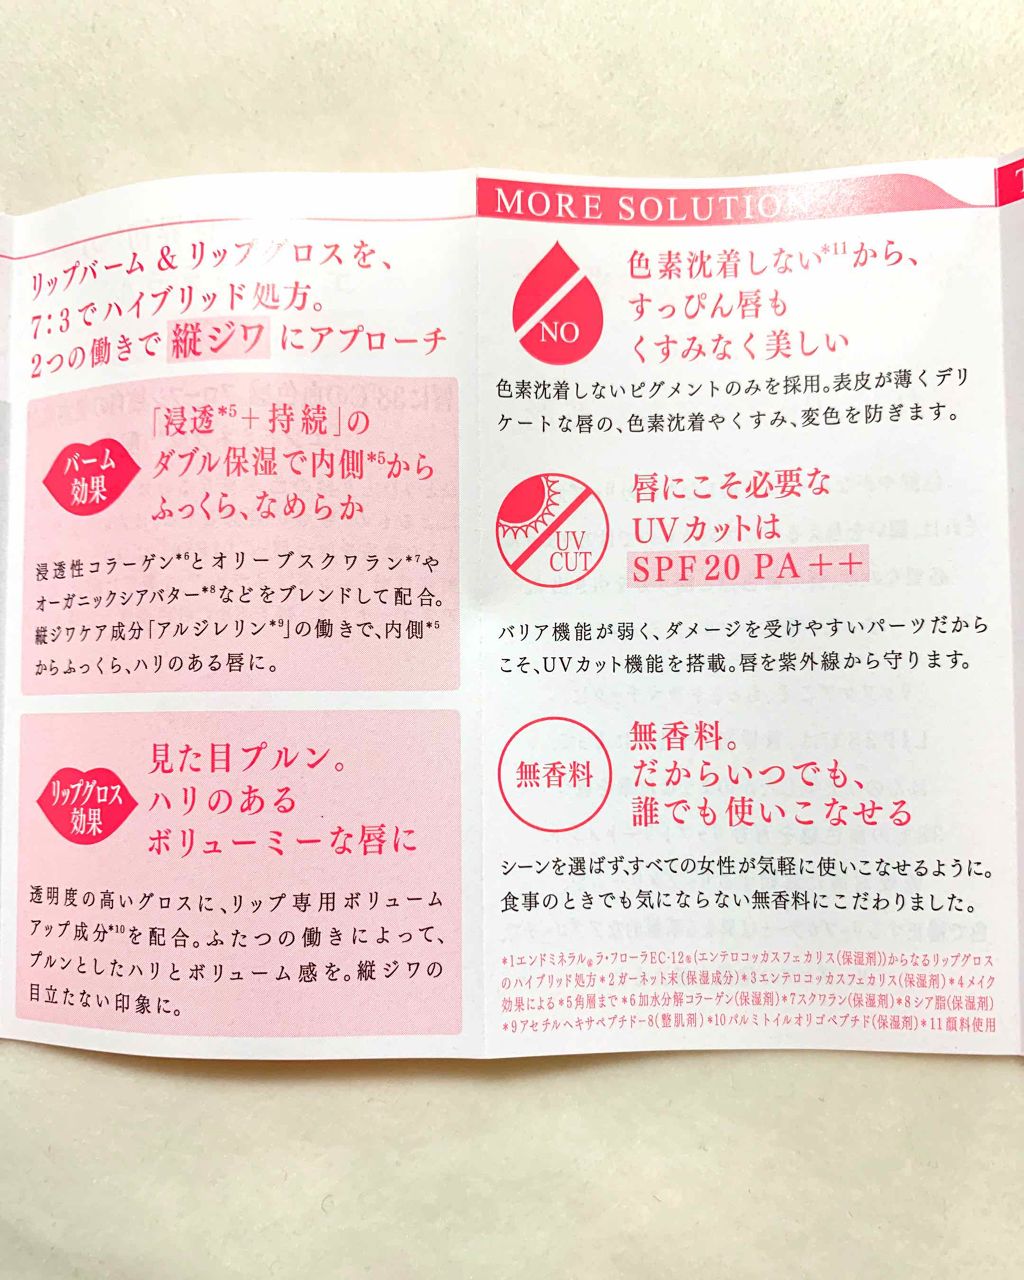 リップバーム & リップグロスを、
7:3でハイブリッド処方。
2つの働きで 縦ジワ にアプローチ
バーム
効果
「浸透*5＋持続」の
ダブル保湿で内側*5から
ふっくら、なめらか
浸透性コラーゲン*6とオリーブスクワラン*7や
オーガニックシアバター*8などをブレンドして配合。
縦ジワケア成分「アルジレリン*9」の働きで、内側*5
からふっくら、ハリのある唇に。
リップグロス
効果
見た目プルン。
ハリのある
ボリューミーな唇に
透明度の高いグロスに、リップ専用ボリューム
アップ成分*10を配合。ふたつの働きによって、
プルンとしたハリとボリューム感を。縦ジワの
目立たない印象に。
MORE SOLUTION
NO
色素沈着しない*11から、
すっぴん唇も
くすみなく美しい
色素沈着しないピグメントのみを採用。表皮が薄くデリ
ケートな唇の、色素沈着やくすみ、変色を防ぎます。
UV
CUT
唇にこそ必要な
UVカットは
SPF20 PA＋＋
バリア機能が弱く、ダメージを受けやすいパーツだから
こそ、UVカット機能を搭載。唇を紫外線から守ります。
無香料
無香料。
だからいつでも、
誰でも使いこなせる
シーンを選ばず、すべての女性が気軽に使いこなせるように。
食事のときでも気にならない無香料にこだわりました。
*1エンドミネラル®ラ・フローラEC-12®(エンテロコッカスフェカリス(保湿剤))からなるリップグロス
のハイブリッド処方*2ガーネット末(保湿成分)*3エンテロコッカスフェカリス(保湿剤)*4メイク
効果による*5角層まで*6加水分解コラーゲン(保湿剤)*7スクワラン(保湿剤)*8シア脂(保湿剤)
*9アセチルヘキサペプチド-8(整肌剤)*10パルミトイルオリゴペプチド(保湿剤)*11顔料使用